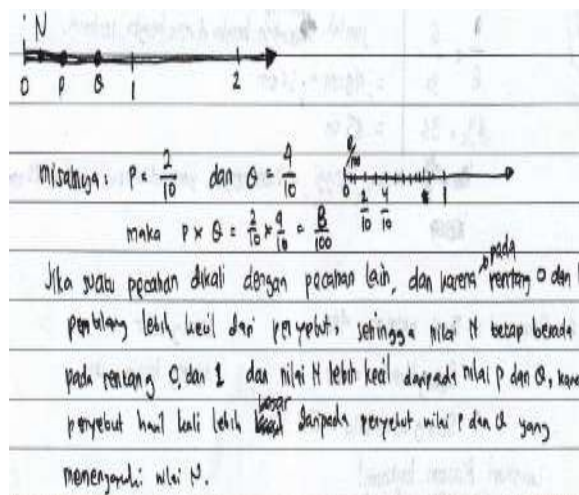 N
0 P Q 1 2
misalnya: P = 2/10 dan Q = 4/10
8/100
0 2/10 4/10 1
maka P x Q = 2/10 x 4/10 = 8/100
Jika suatu pecahan dikali dengan pecahan lain, dan karena pada rentang 0 dan
pembilang lebih kecil dari penyebut, sehingga nilai N tetap berada
pada rentang 0, dan 1 dan nilai N lebih kecil daripada nilai P dan Q,
penyebut hasil kali lebih besar daripada penyebut nilai P dan Q yang
nilai N.